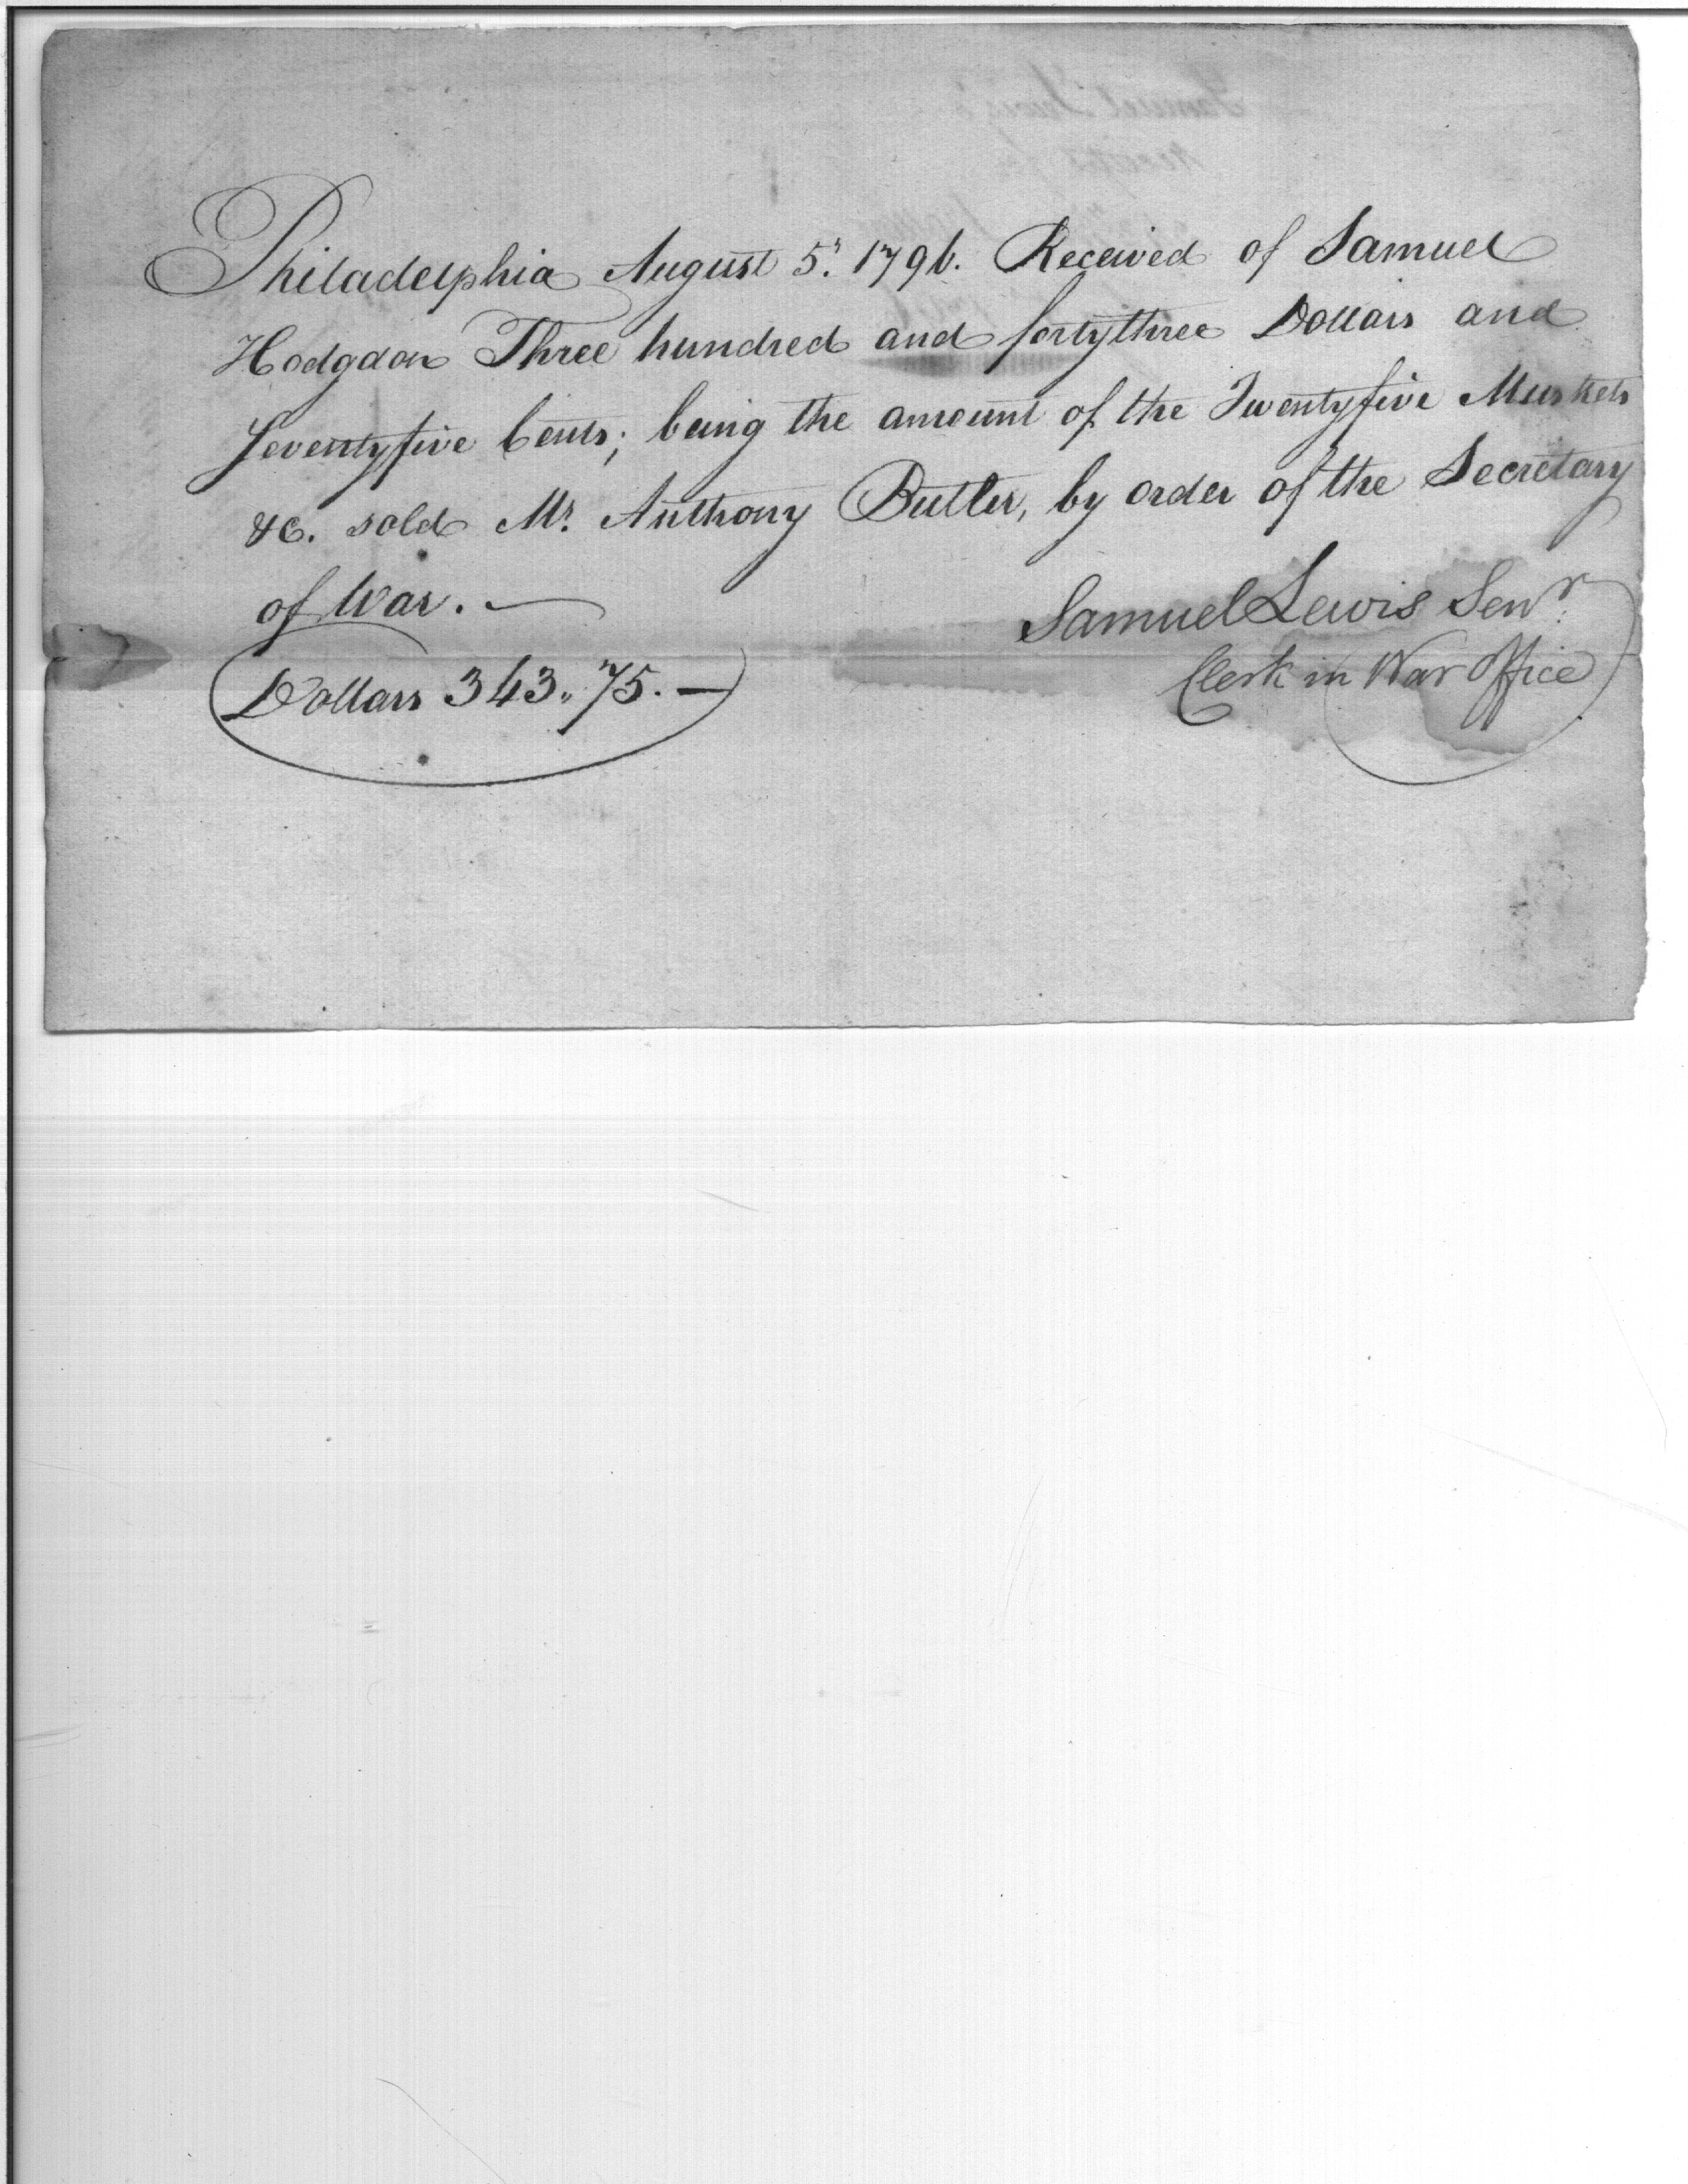 Philadelphia August 5th. 1796. Received of Samuel
Hodgdon Three hundred and fortythree Dollars and
Seventyfive Cents; being the amount of the Twentyfive Muskets
&c. sold Mr. Anthony Butler, by order of the Secretary
of War. —
Samuel Lewis Senr.
Clerk in War Office
Dollars 343..75. —